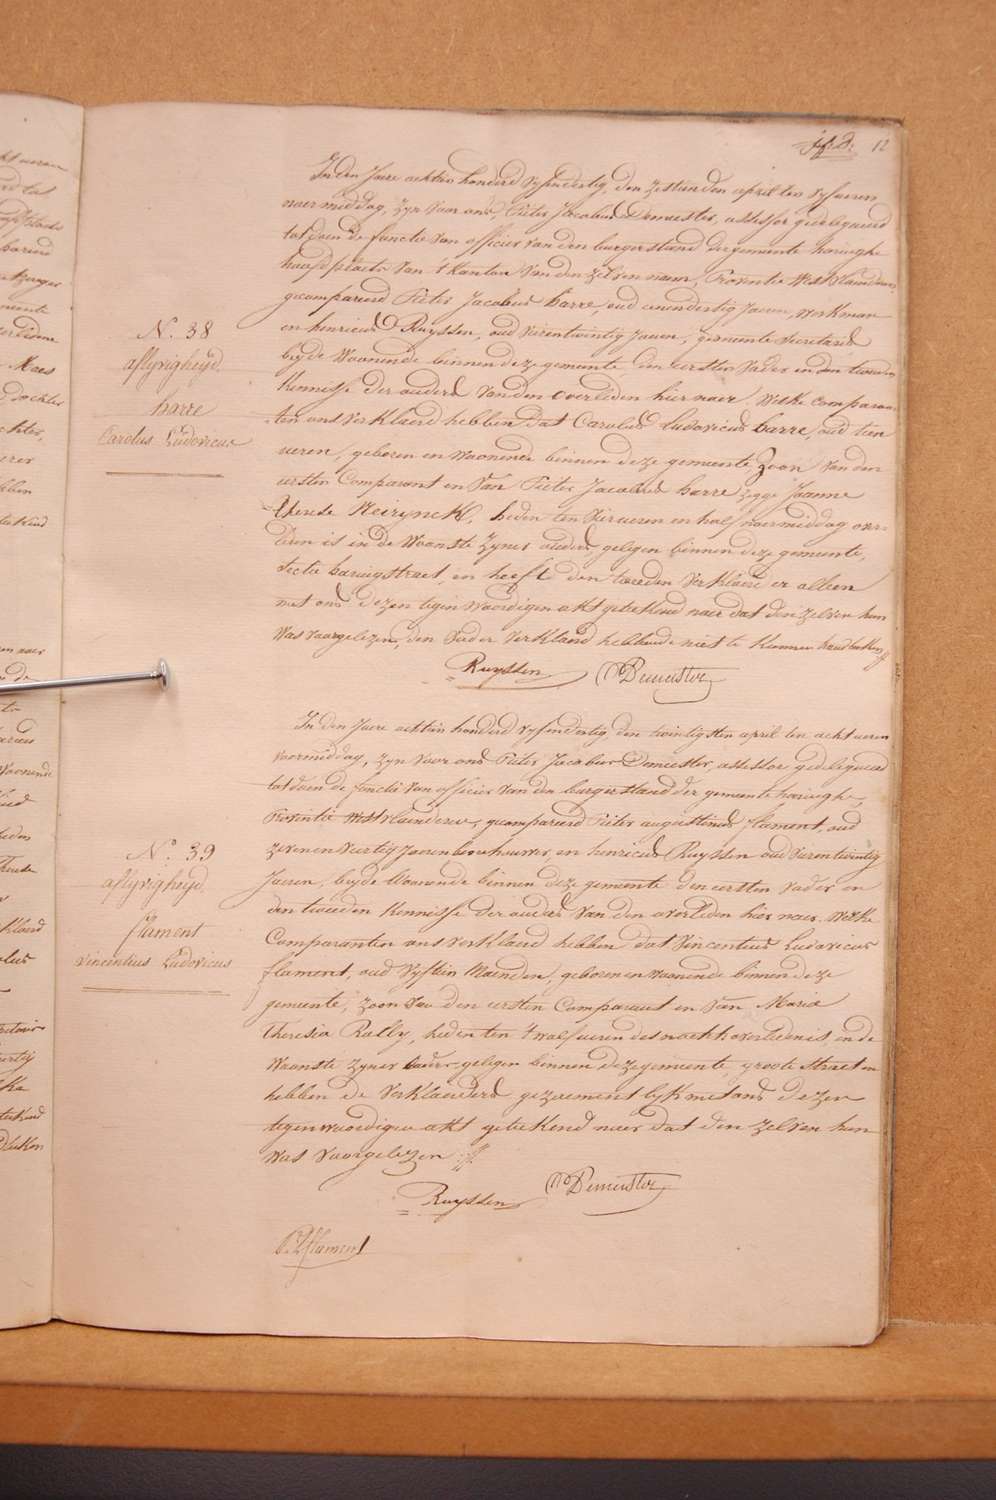 12
In den Jaere achtien honderd vyfendertig den zestienden april ten vyf ueren
naermiddag, zyn voor ons, Pieter Jacobus Demeester, assessor gedelegueerd
tot doen de functie van officier van den burgerstand der gemeente haringhe
hoofdplaets van 't kanton van den zelven naem, Proventie West Vlaenderen,
gecompareerd Pieter Jacobus barre, oud eenendertig Jaeren, werkman
en henricus Ruyssen, oud vierentwintig Jaeren, gemeente secretaris
beyde woonende binnen deze gemeente den eersten vader en den tweeden
Kennisse der ouders van den overleden hier naer, welke comparan-
ten ons verklaerd hebben dat Carolus Ludovicus barre, oud tien
ueren, geboren en woonende binnen deze gemeente, zoon van den
eersten Comparant en van Pieter Jacobus barre zegge Joanne
Therese Meirynck, heden ten vier ueren en half naermiddag over-
leden is in de woonste zyner ouders gelegen binnen deze gemeente,
sectie haringstraet, en heeft den tweeden verklaerer alleen
met ons dezen tegenwoordigen akt geteekend naer dat den zelven hun
was voorgelezen, den vader verklaerd hebbende niet te kunnen handteekenen
Ruyssen Demeester
N. 38
aflyvigheyd.
barre
Carolus Ludovicus
In den Jaere achtien honderd vyfendertig den twintigsten april ten acht ueren
voormiddag, zyn voor ons Pieter Jacobus Demeester, assessor gedelegueerd
tot doen de functie van officier van den burgerstand der gemeente haringhe,
Proventie Westvlaenderen, gecompareerd Pieter augustinus flament, oud
zevenenveertig Jaeren bouwer, en henricus Ruyssen oud vierentwintig
Jaeren, beyde woonende binnen deze gemeente den eersten vader en
den tweeden kennisse der ouders van den overleden hier naer. Welke
Comparanten ons verklaerd hebben dat Vincentius Ludovicus
flament, oud vyftien Maenden, geboren en woonende binnen deze
gemeente, zoon van den eersten Comparant en van Maria
Theresia Rally, heden ten twalf ueren des nachts overleden is, in de
woonste zyner ouders gelegen binnen deze gemeente, groote straet en
hebben de verklaerders gezaementlyk met ons dezen
tegenwoordigen akt geteekend naer dat den zelven hun
was voorgelezen
Ruyssen Demeester
P.A flament
N.º 39
aflyvigheyd.
flament
Vincentius Ludovicus